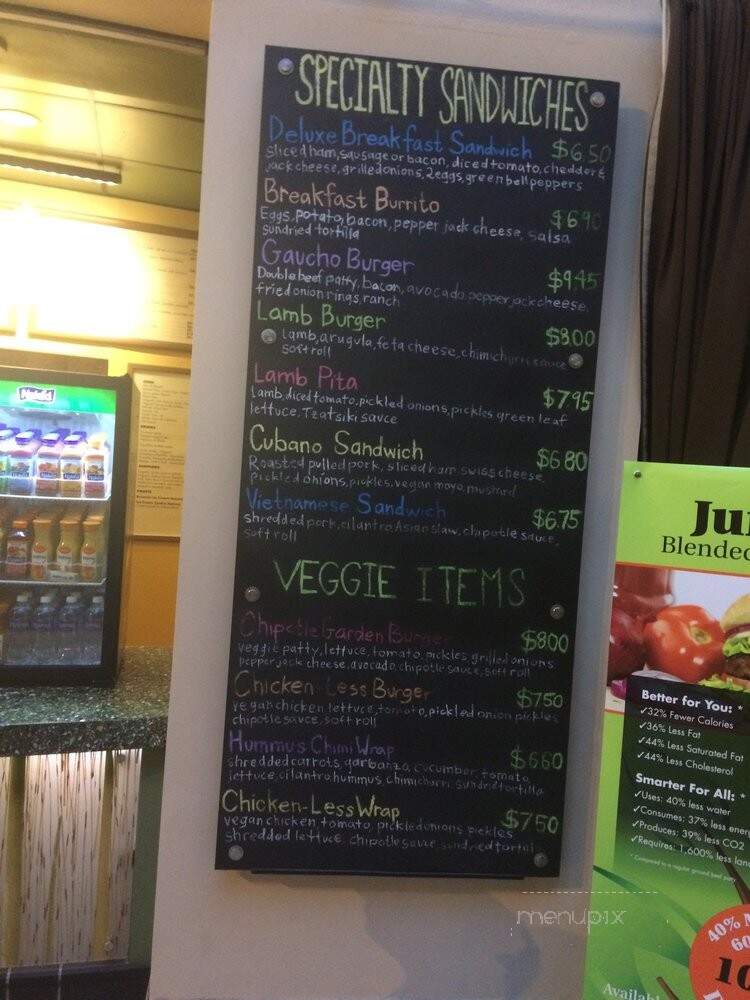 SPECIALTY SANDWICHES
Deluxe Breakfast Sandwich $6.50
sliced ham, sausage or bacon, diced tomato, chedder &
jack cheese, grilled onions, 2 eggs, green bell peppers
Breakfast Burrito $6.90
Eggs, potato, bacon, pepper jack cheese, salsa
sundried tortilla
Gaucho Burger $9.45
Double beef patty, bacon, avocado, pepper jack cheese,
fried onion rings, ranch
Lamb Burger $8.00
lamb, arugula, feta cheese, chimichurri sauce
soft roll
Lamb Pita $7.95
Lamb, diced tomato, pickled onions, pickles green leaf
lettuce, Tzatsiki sauce
Cubano Sandwich $6.80
Roasted pulled pork, sliced ham swiss cheese,
pickled onions, pickles, vegan mayo, mustard
Vietnamese Sandwich $6.75
shredded pork, cilantro Asian slaw, chipotle sauce,
soft roll
VEGGIE ITEMS
Chipotle Garden Burger $800
veggie patty, lettuce, tomato, pickles grilled onions
pepper jack cheese, avocado, chipotle sauce, soft roll
Chicken-Less Burger $750
vegan chicken, lettuce, tomato, pickled onion pickles
chipotle sauce, soft roll
Hummus Chimi Wrap $660
shredded carrots, garbanza, cucumber, tomato,
lettuce, cilantro hummus, chimichurri, sundried tortilla
Chicken-Less Wrap $750
vegan chicken, tomato, pickled onions pickles
shredded lettuce, chipotle sauce, sundried tortilla
Naked
Blended
Better for You: *
✓32% Fewer Calories
✓36% Less Fat
✓44% Less Saturated Fat
✓44% Less Cholesterol
Smarter For All: *
✓Uses: 40% less water
✓Consumes: 37% less
✓Produces: 39% less CO2
✓Requires: 1,600% less
* Compared to a regular ground beef
40%
60
10
menupix